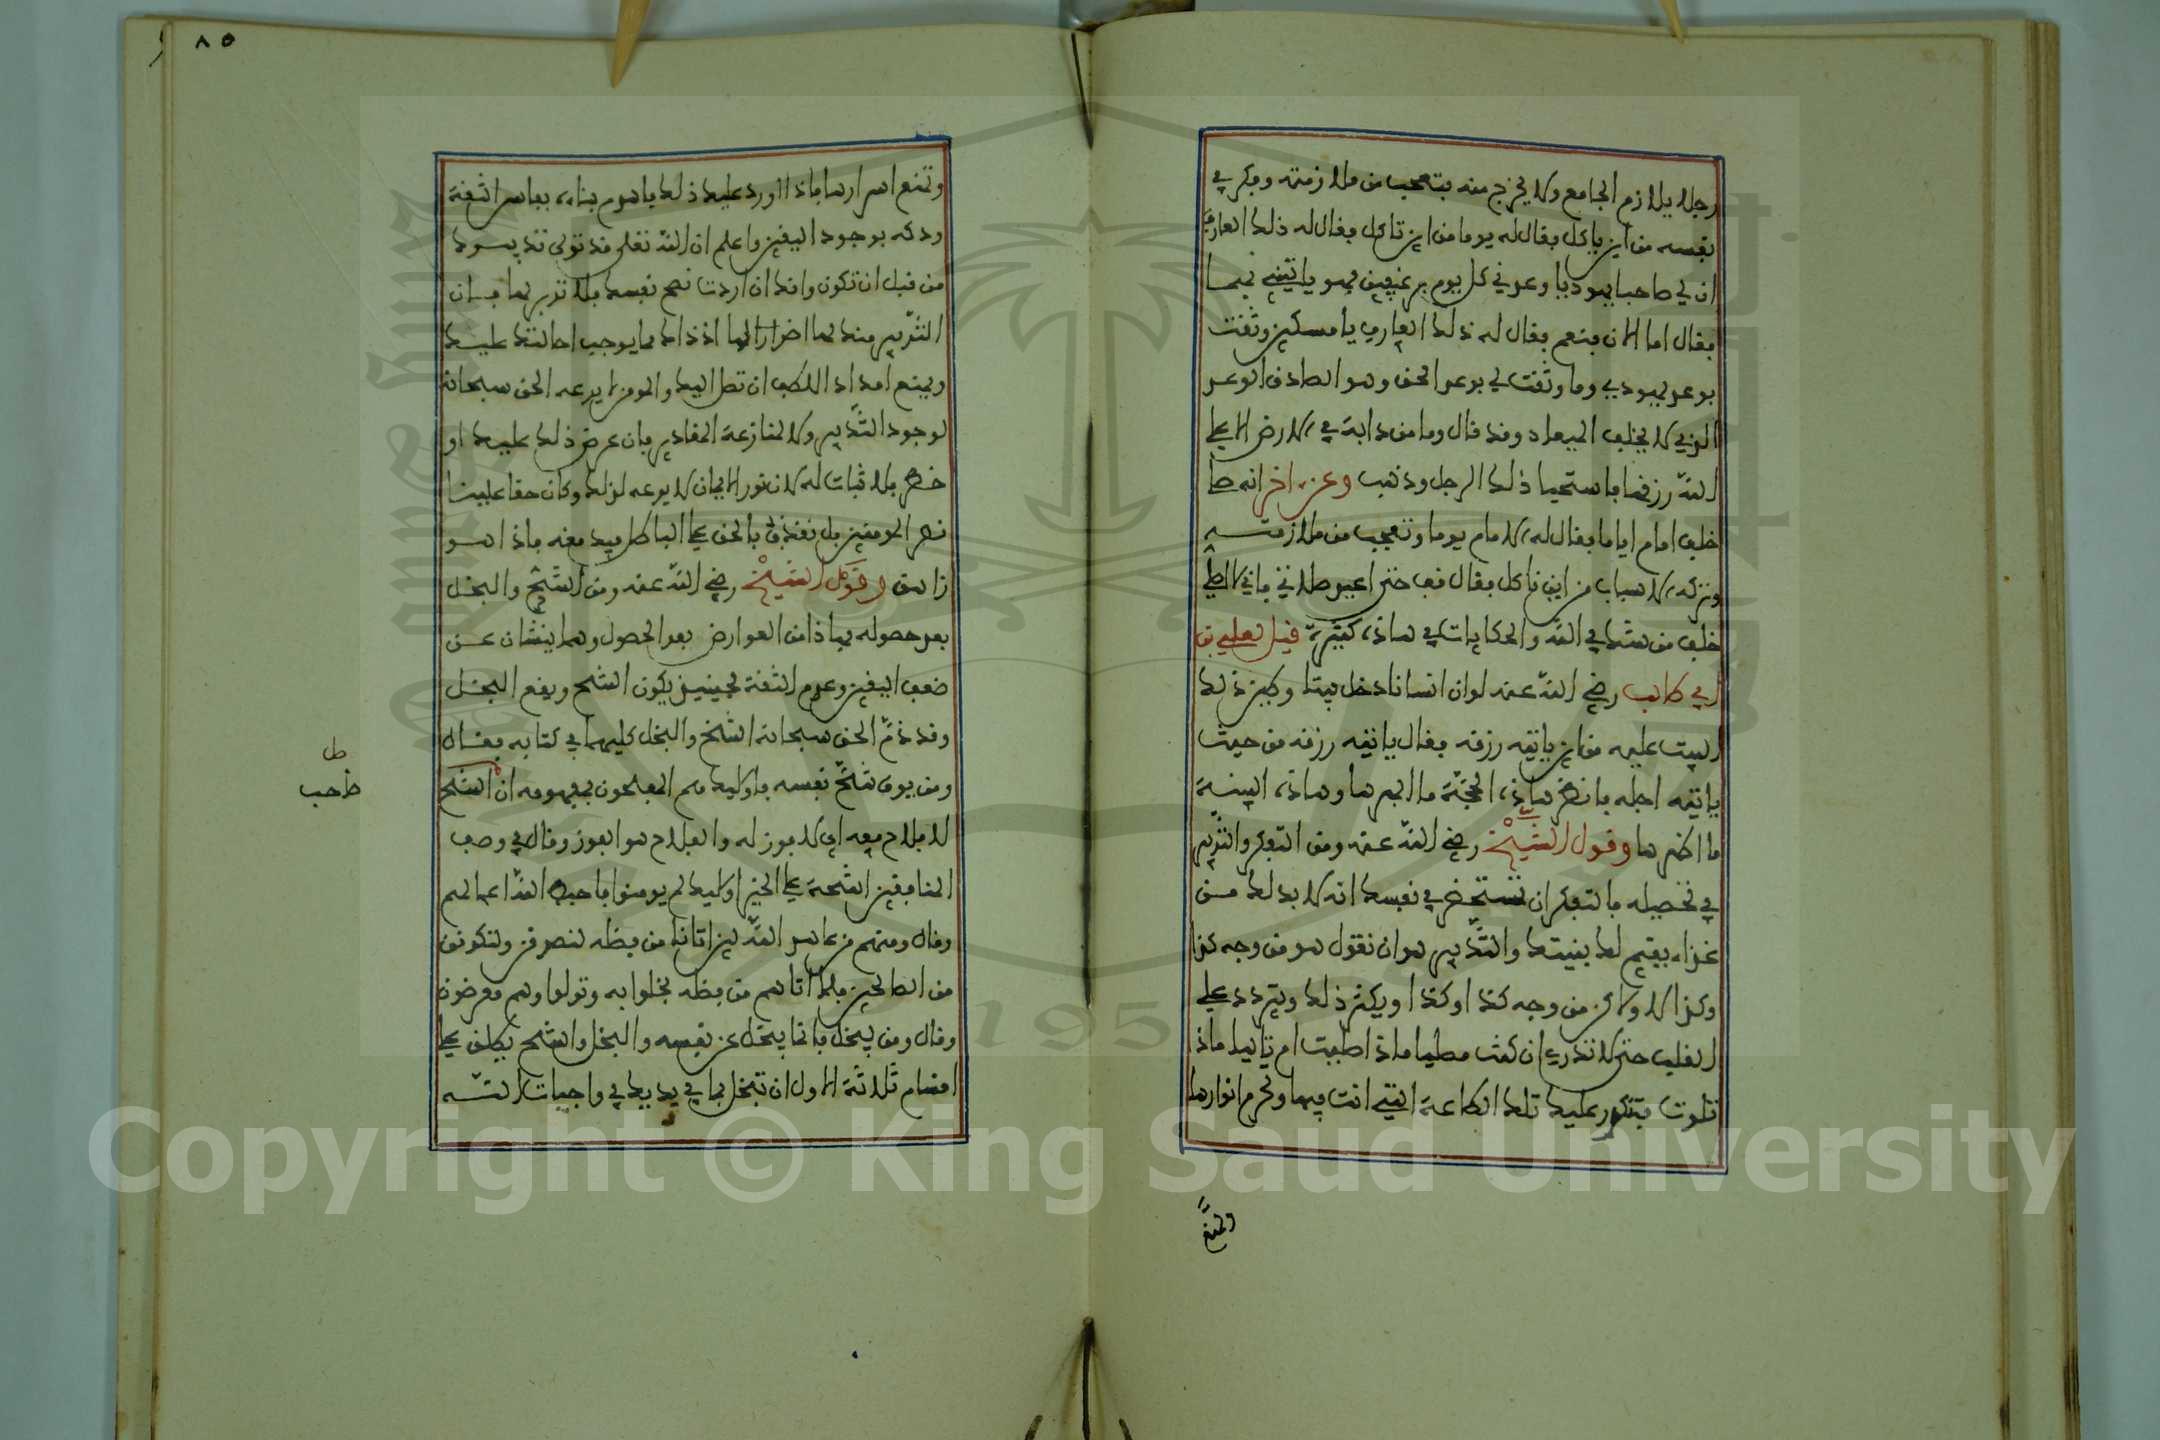 رجلا يلازم الجامع ولا يخرج منه فتعجب من ملازمته وفكر في
نفسه من اين ياكل فقال له يوما من اين تاكل فقال له ذلك العارف
ان لي صاحبا يهوديا وعدني كل يوم برغيفين فهو ياتيني بهما
فقال اما الان فنعم فقال له ذلك العارف يا مسكين وثقت
بوعد يهودي وما وثقت لي بوعد الحق وهو الصادق الوعد
الذي لا يخلف الميعاد وقد قال وما من دابة في الارض الا على
الله رزقها فاستحيا ذلك الرجل وذهب وعن اخر انه صلى
خلف امام اياما فقال له الامام يوما وتعجب من ملازمته
وتركه الاسباب من اين تاكل فقال قف حتى اعيد صلاتي فاني لا اصلي
خلف من شك في الله والحكايات في هذا كثيرة قيل لعلي بن
ابي طالب رضي الله عنه لو ان انسانا دخل بيتا وطين ذلك
البيت عليه من اين ياتيه رزقه فقال ياتيه رزقه من حيث
ياتيه اجله فانظر هذه الحجة ما ابهرها وهذه البينة
ما اظهرها وقول الشيخ رضي الله عنه ومن التفكر والتدبير
في تحصيله فالتفكر ان تستحضر في نفسك انه لا بد لك من
غذاء يقيم لك بنيتك والتدبير هو ان تقول هو من وجه كذا
وكذا لا ولكن من وجه كذا او كذا ويكثر ذلك ويتردد على
القلب حتى لا تدري ان كنت مصليا ماذا صليت ام تاليا ماذا
تلوت فتتكدر عليك تلك الطاعة التي انت فيها وتحرم انوارها
وتمنع
٨٥
وتمنع اسرارها فاذا اورد عليك ذلك فاهدم بناءه بفاس الثقة
ودكه بوجود اليقين واعلم ان الله تعلى قد تولى تدبيرك
من قبل ان تكون وانك ان اردت نصح نفسك فلا تدبر لها فان
التدبير منك لها اضرار لها اذ ذاك مما يوجب احالتك عليك
ويمنع امداد اللطف ان تصل اليك والمومن لا يدعه الحق سبحانه
لوجود التدبير ولا لمنازعة المقادير فان عرض ذلك عليك او
خطر فلا ثبات له لان نور الايمان لا يدعه لذلك وكان حقا علينا
نصر المومنين بل نقذف بالحق على الباطل فيدمغه فاذا هو
زاهق وقول الشيخ رضي الله عنه ومن الشح والبخل
بعد حصوله فهاذان من العوارض بعد الحصول وهما ينشان عن
ضعف اليقين وعدم الثقة فحينئذ يكون الشح ويقع البخل
وقد ذم الحق سبحانه الشح والبخل كليهما في كتابه فقال
ومن يوق شح نفسه فاوليك هم المفلحون فمفهومه ان الشح
صاحب
لا فلاح معه اي لا فوز له والفلاح هو الفوز وقال في وصف
المنافقين اشحة على الخير اوليك لم يومنوا فاحبط الله اعمالهم
وقال ومنهم من عاهد الله لين اتانا من فضله لنصدقن ولنكونن
من الصالحين فلما اتاهم من فضله بخلوا به وتولوا وهم معرضون
وقال ومن يبخل فانما يبخل عن نفسه والبخل والشح يطلق على
اقسام ثلاثة الاول ان تبخل بما في يديك في واجبات الله